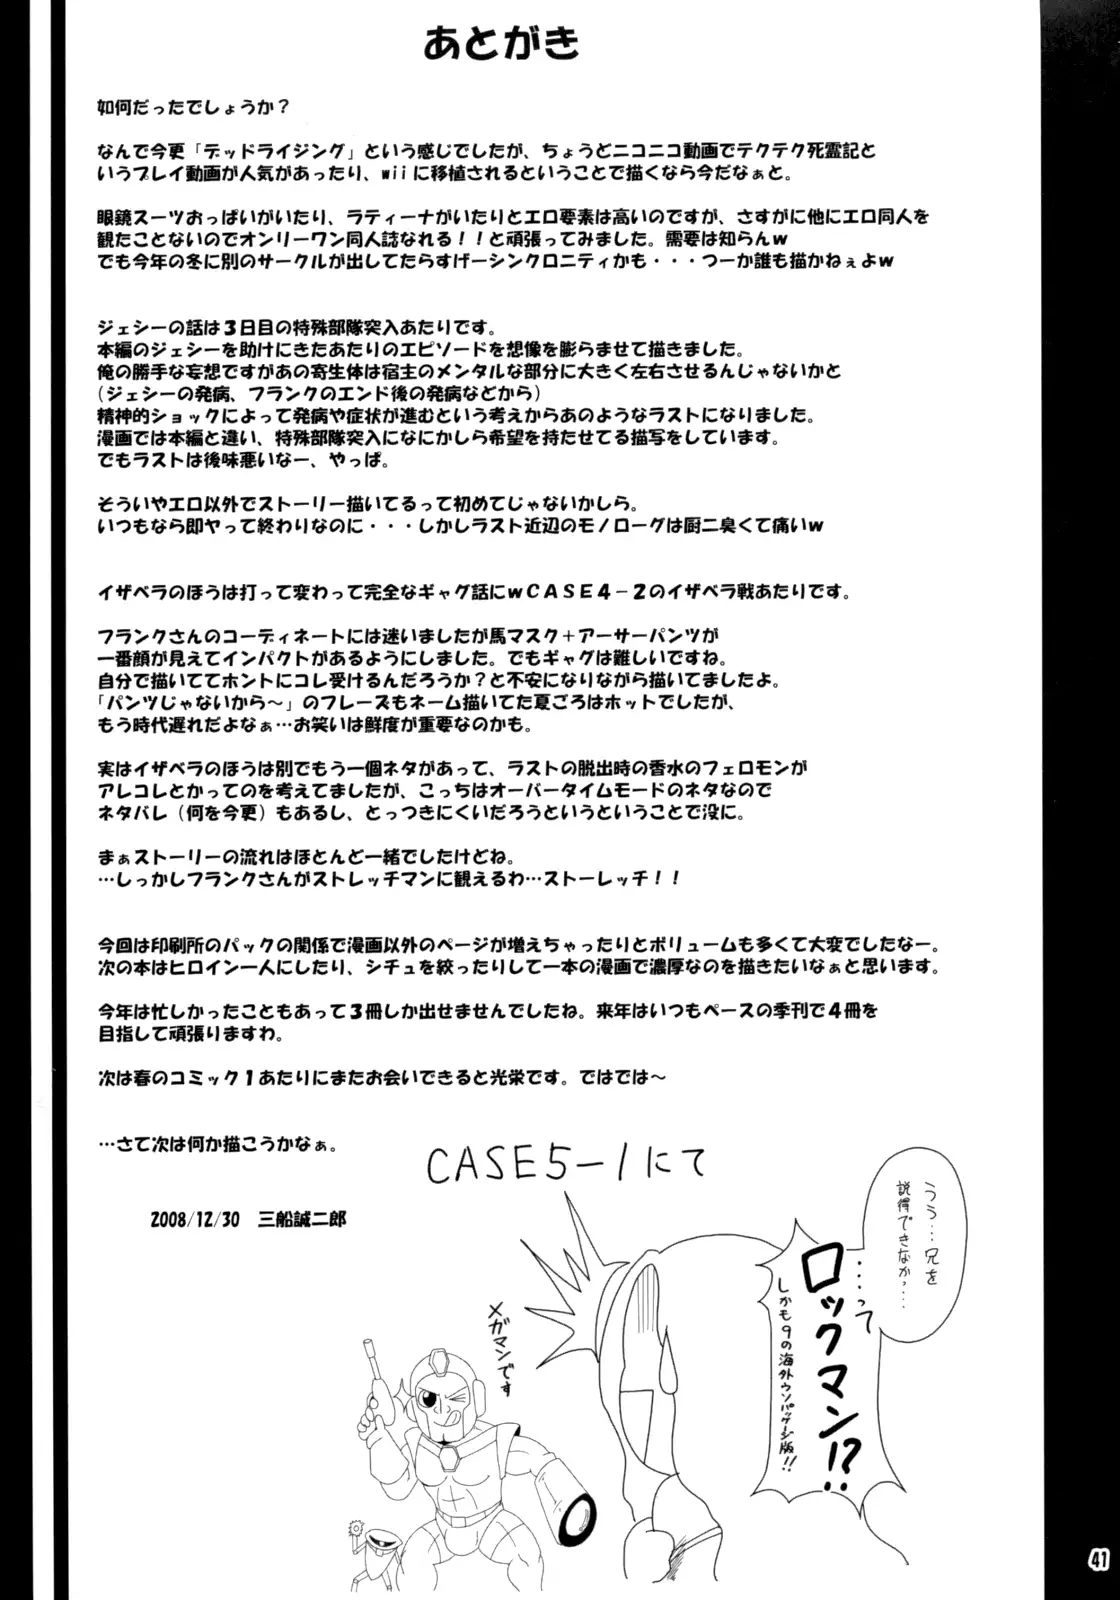 あとがき
如何だったでしょうか？
なんで今更「デッドライジング」という感じでしたが、ちょうどニコニコ動画でテクテク死霊記と
いうプレイ動画が人気があったり、wiiに移植されるということで描くなら今だなぁと。
眼鏡スーツおっぱいがいたり、ラティーナがいたりとエロ要素は高いのですが、さすがに他にエロ同人を
観たことないのでオンリーワン同人誌なれる！！と頑張ってみました。需要は知らんｗ
でも今年の冬に別のサークルが出してたらすげーシンクロニティかも・・・つーか誰も描かねぇよｗ
ジェシーの話は３日目の特殊部隊突入あたりです。
本編のジェシーを助けにきたあたりのエピソードを想像を膨らませて描きました。
俺の勝手な妄想ですがあの寄生体は宿主のメンタルな部分に大きく左右させるんじゃないかと
（ジェシーの発病、フランクのエンド後の発病などから）
精神的ショックによって発病や症状が進むという考えからあのようなラストになりました。
漫画では本編と違い、特殊部隊突入になにかしら希望を持たせてる描写をしています。
でもラストは後味悪いなー、やっぱ。
そういやエロ以外でストーリー描いてるって初めてじゃないかしら。
いつもなら即ヤって終わりなのに・・・しかしラスト近辺のモノローグは厨二臭くて痛いｗ
イザベラのほうは打って変わって完全なギャグ話にｗＣＡＳＥ４－２のイザベラ戦あたりです。
フランクさんのコーディネートには迷いましたが馬マスク＋アーサーパンツが
一番顔が見えてインパクトがあるようにしました。でもギャグは難しいですね。
自分で描いててホントにコレ受けるんだろうか？と不安になりながら描いてましたよ。
「パンツじゃないから～」のフレーズもネーム描いてた夏ごろはホットでしたが、
もう時代遅れだよなぁ…お笑いは鮮度が重要なのかも。
実はイザベラのほうは別でもう一個ネタがあって、ラストの脱出時の香水のフェロモンが
アレコレとかってのを考えてましたが、こっちはオーバータイムモードのネタなので
ネタバレ（何を今更）もあるし、とっつきにくいだろうというということで没に。
まぁストーリーの流れはほとんど一緒でしたけどね。
…しっかしフランクさんがストレッチマンに観えるわ…ストーレッチ！！
今回は印刷所のパックの関係で漫画以外のページが増えちゃったりとボリュームも多くて大変でしたなー。
次の本はヒロイン一人にしたり、シチュを絞ったりして一本の漫画で濃厚なのを描きたいなぁと思います。
今年は忙しかったこともあって３冊しか出せませんでしたね。来年はいつもペースの季刊で４冊を
目指して頑張りますわ。
次は春のコミック１あたりにまたお会いできると光栄です。ではでは～
…さて次は何か描こうかなぁ。
2008/12/30　三船誠二郎
CASE5-1にて
うう…兄を
説得できなか…
…って
ロックマン!?
しかも9の海外ウソパッケージ版!!
メガマンです
41